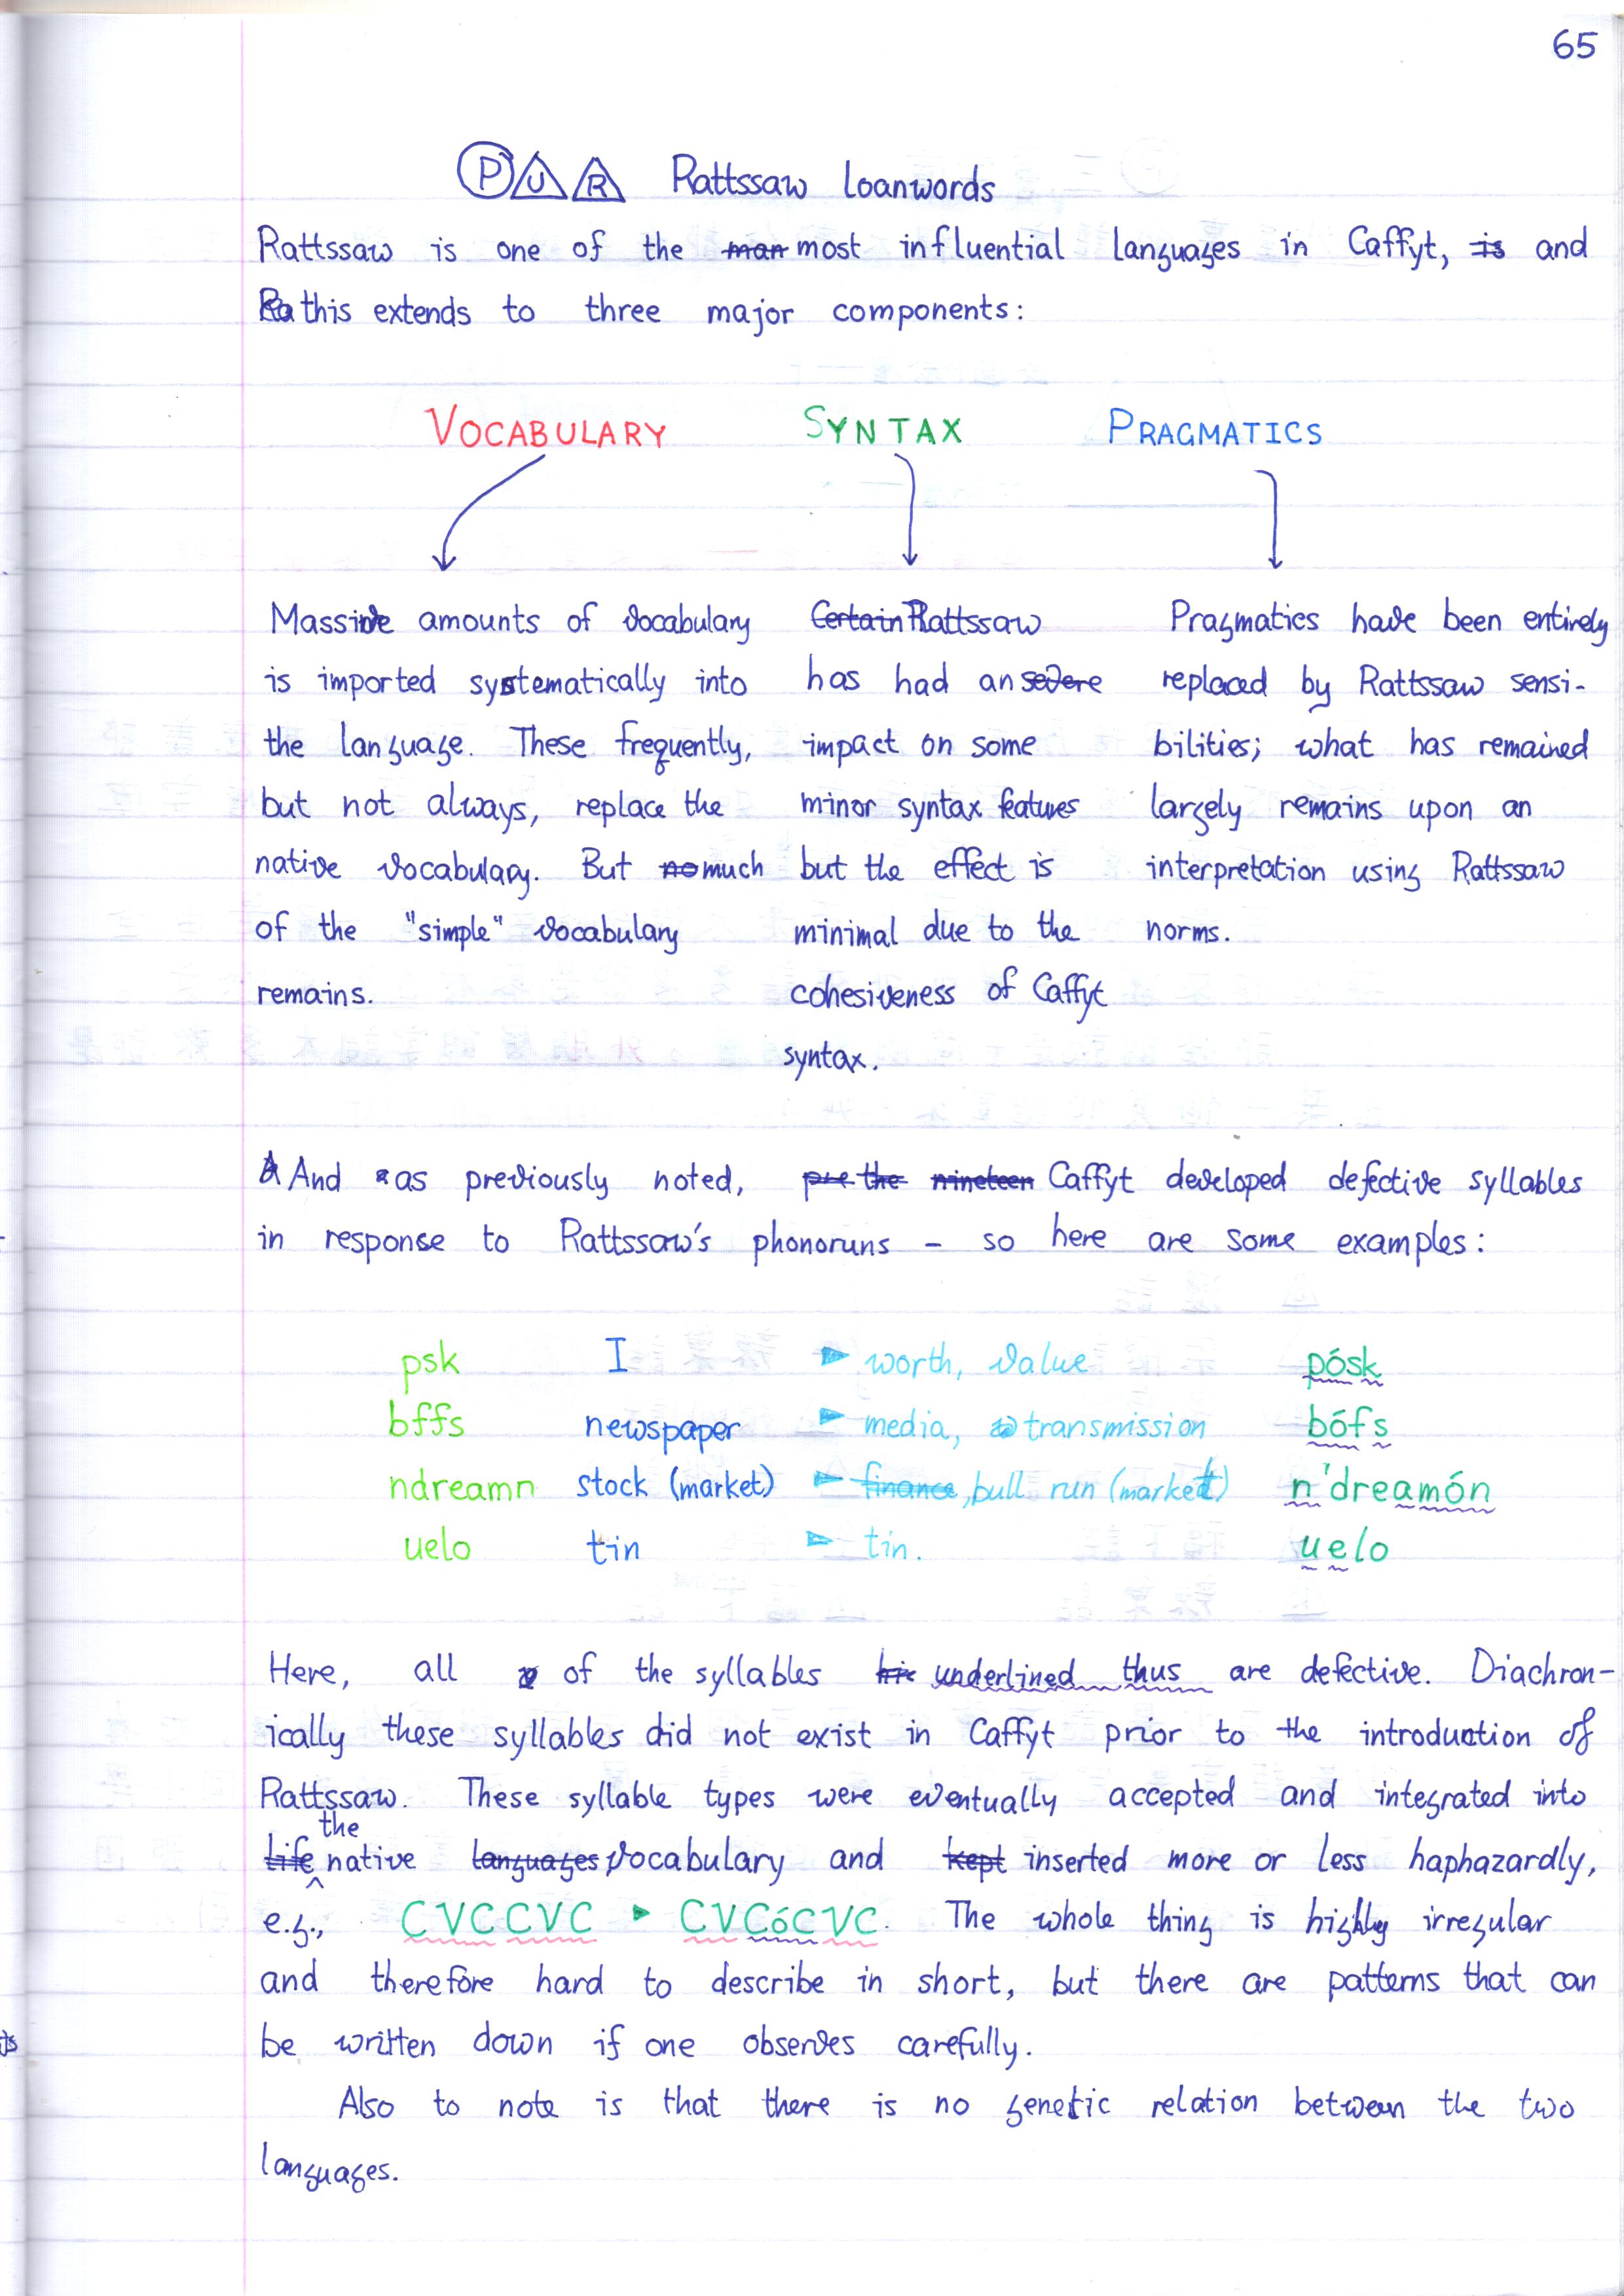 65
P U R Rattssaw loanwords
Rattssaw is one of the man most influential languages in Caffyt, is and
Ra this extends to three major components:
VOCABULARY SYNTAX PRAGMATICS
Massive amounts of vocabulary
is imported systematically into
the language. These frequently,
but not always, replace the
native vocabulary. But no much
of the "simple" vocabulary
remains.
Certain Rattssaw
has had an severe
impact on some
minor syntax features
but the effect is
minimal due to the
cohesiveness of Caffyt
syntax.
Pragmatics have been entirely
replaced by Rattssaw sensi-
bilities; what has remained
largely remains upon an
interpretation using Rattssaw
norms.
A And as previously noted, pre the nineteen Caffyt developed defective syllables
in response to Rattssaw's phonoruns – so here are some examples:
psk I ► worth, value pósk
bffs newspaper ► media, transmission bófs
ndreamn stock (market) ► finance, bull run (market) n'dreamón
uelo tin ► tin. uelo
Here, all of the syllables underlined thus are defective. Diachron-
ically these syllables did not exist in Caffyt prior to the introduction of
Rattssaw. These syllable types were eventually accepted and integrated into
life the native languages vocabulary and kept inserted more or less haphazardly,
e.g., CVCCVC ► CVCóCVC. The whole thing is highly irregular
and therefore hard to describe in short, but there are patterns that can
be written down if one observes carefully.
Also to note is that there is no genetic relation between the two
languages.